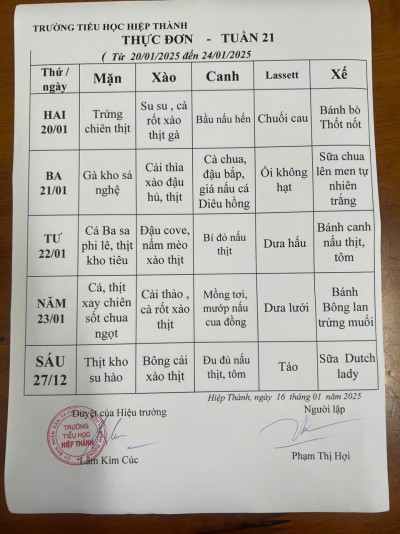 TRƯỜNG TIỂU HỌC HIỆP THÀNH
THỰC ĐƠN - TUẦN 21
( Từ 20/01/2025 đến 24/01/2025
Thứ / ngày | Mặn | Xào | Canh | Lassett | Xế
HAI 20/01 | Trứng chiên thịt | Su su , cà rốt xào thịt gà | Bầu nấu hến | Chuối cau | Bánh bò Thốt nốt
BA 21/01 | Gà kho sả nghệ | Cải thìa xào đậu hủ, thịt | Cà chua, đậu bắp, giá nấu cá Diêu hồng | Ổi không hạt | Sữa chua lên men tự nhiên trắng
TƯ 22/01 | Cá Ba sa phi lê, thịt kho tiêu | Đậu cove, nấm mèo xào thịt | Bí đỏ nấu thịt | Dưa hấu | Bánh canh nấu thịt, tôm
NĂM 23/01 | Cá, thịt xay chiên sốt chua ngọt | Cải thảo , cà rốt xào thịt | Mồng tơi, mướp nấu cua đồng | Dưa lưới | Bánh Bông lan trứng muối
SÁU 27/12 | Thịt kho su hào | Bông cải xào thịt | Đu đủ nấu thịt, tôm | Táo | Sữa Dutch lady
Hiệp Thành, ngày 16 tháng 01 năm 2025
Duyệt của Hiệu trưởng
Người lập
TRƯỜNG
TIỂU HỌC
HIỆP THÀNH
Lâm Kim Cúc
Phạm Thị Hợi